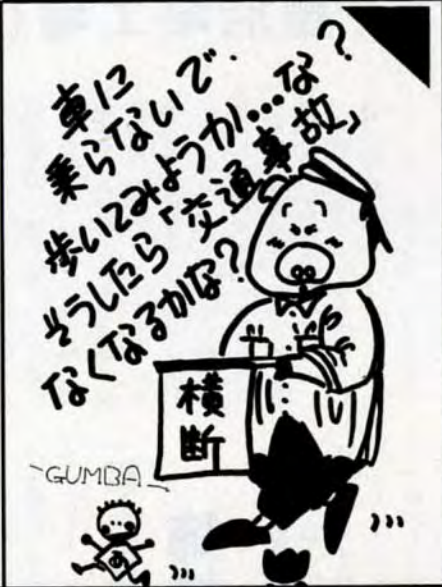 車に
乗らないで．
歩いてみようか…な？
そうしたら「交通事故」
なくなるかな？
横
断
GUMBA
あ